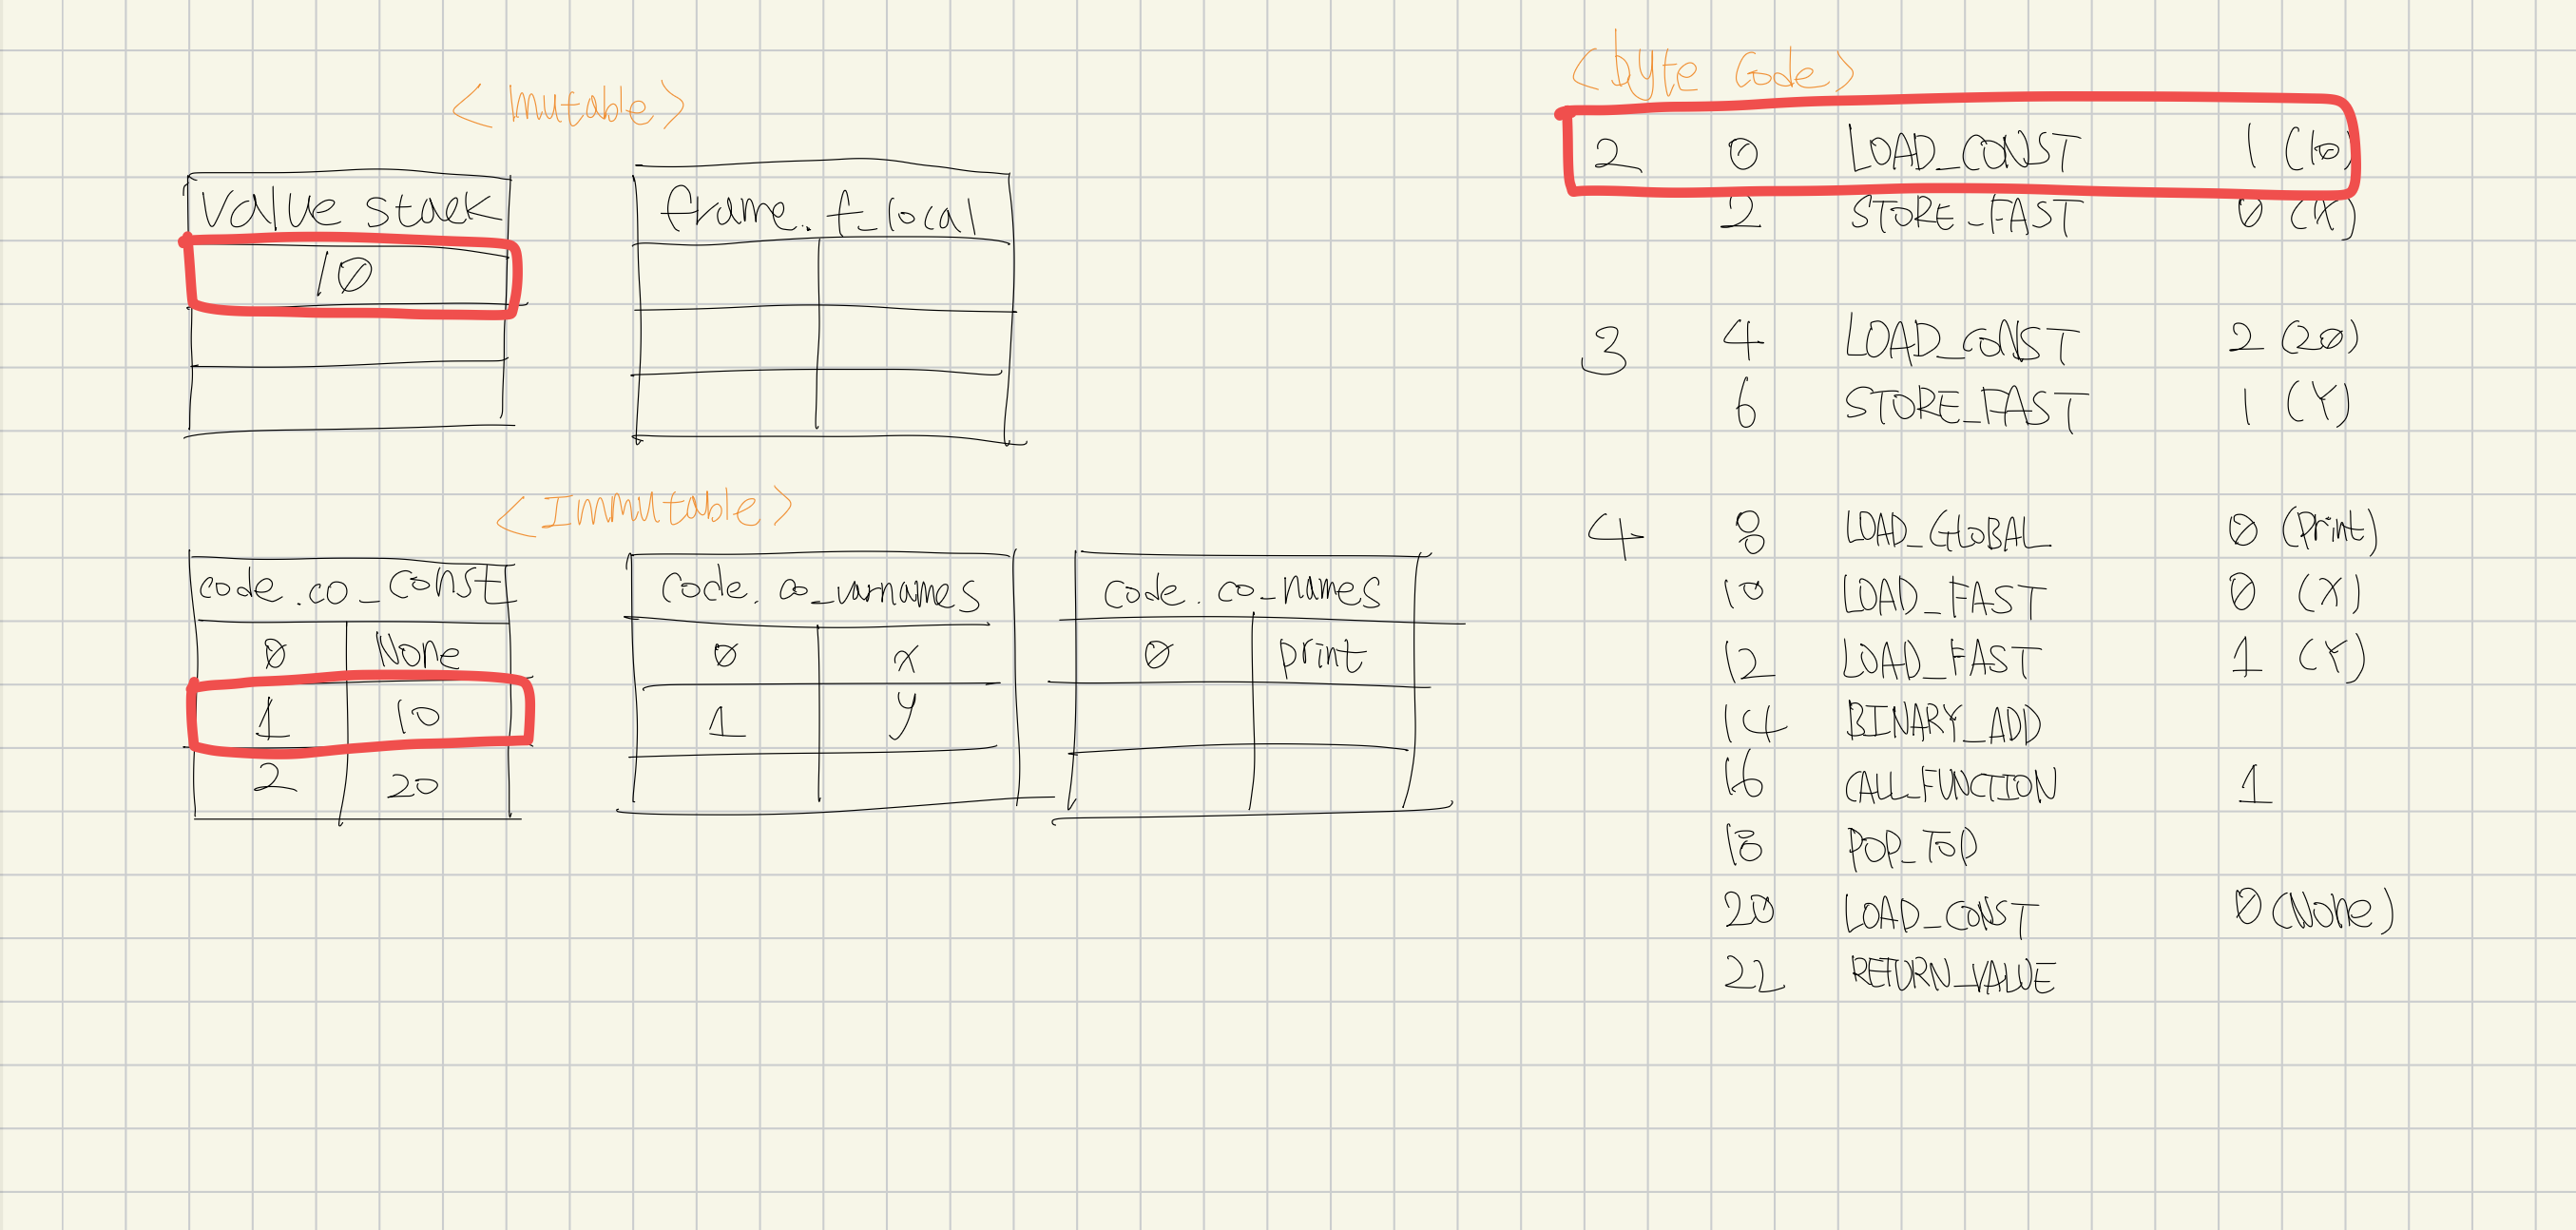 <mutable>
value stack
10
frame. f_local
<Immutable>
code.co_const
0 None
1 10
2 20
code. co_varnames
0 x
1 y
code. co_names
0 print
<byte code>
2 0 LOAD_CONST 1 (10)
2 STORE_FAST 0 (X)
3 4 LOAD_CONST 2 (20)
6 STORE_FAST 1 (Y)
4 8 LOAD_GLOBAL 0 (print)
10 LOAD_FAST 0 (X)
12 LOAD_FAST 1 (Y)
14 BINARY_ADD
16 CALL_FUNCTION 1
18 POP_TOP
20 LOAD_CONST 0 (None)
22 RETURN_VALUE